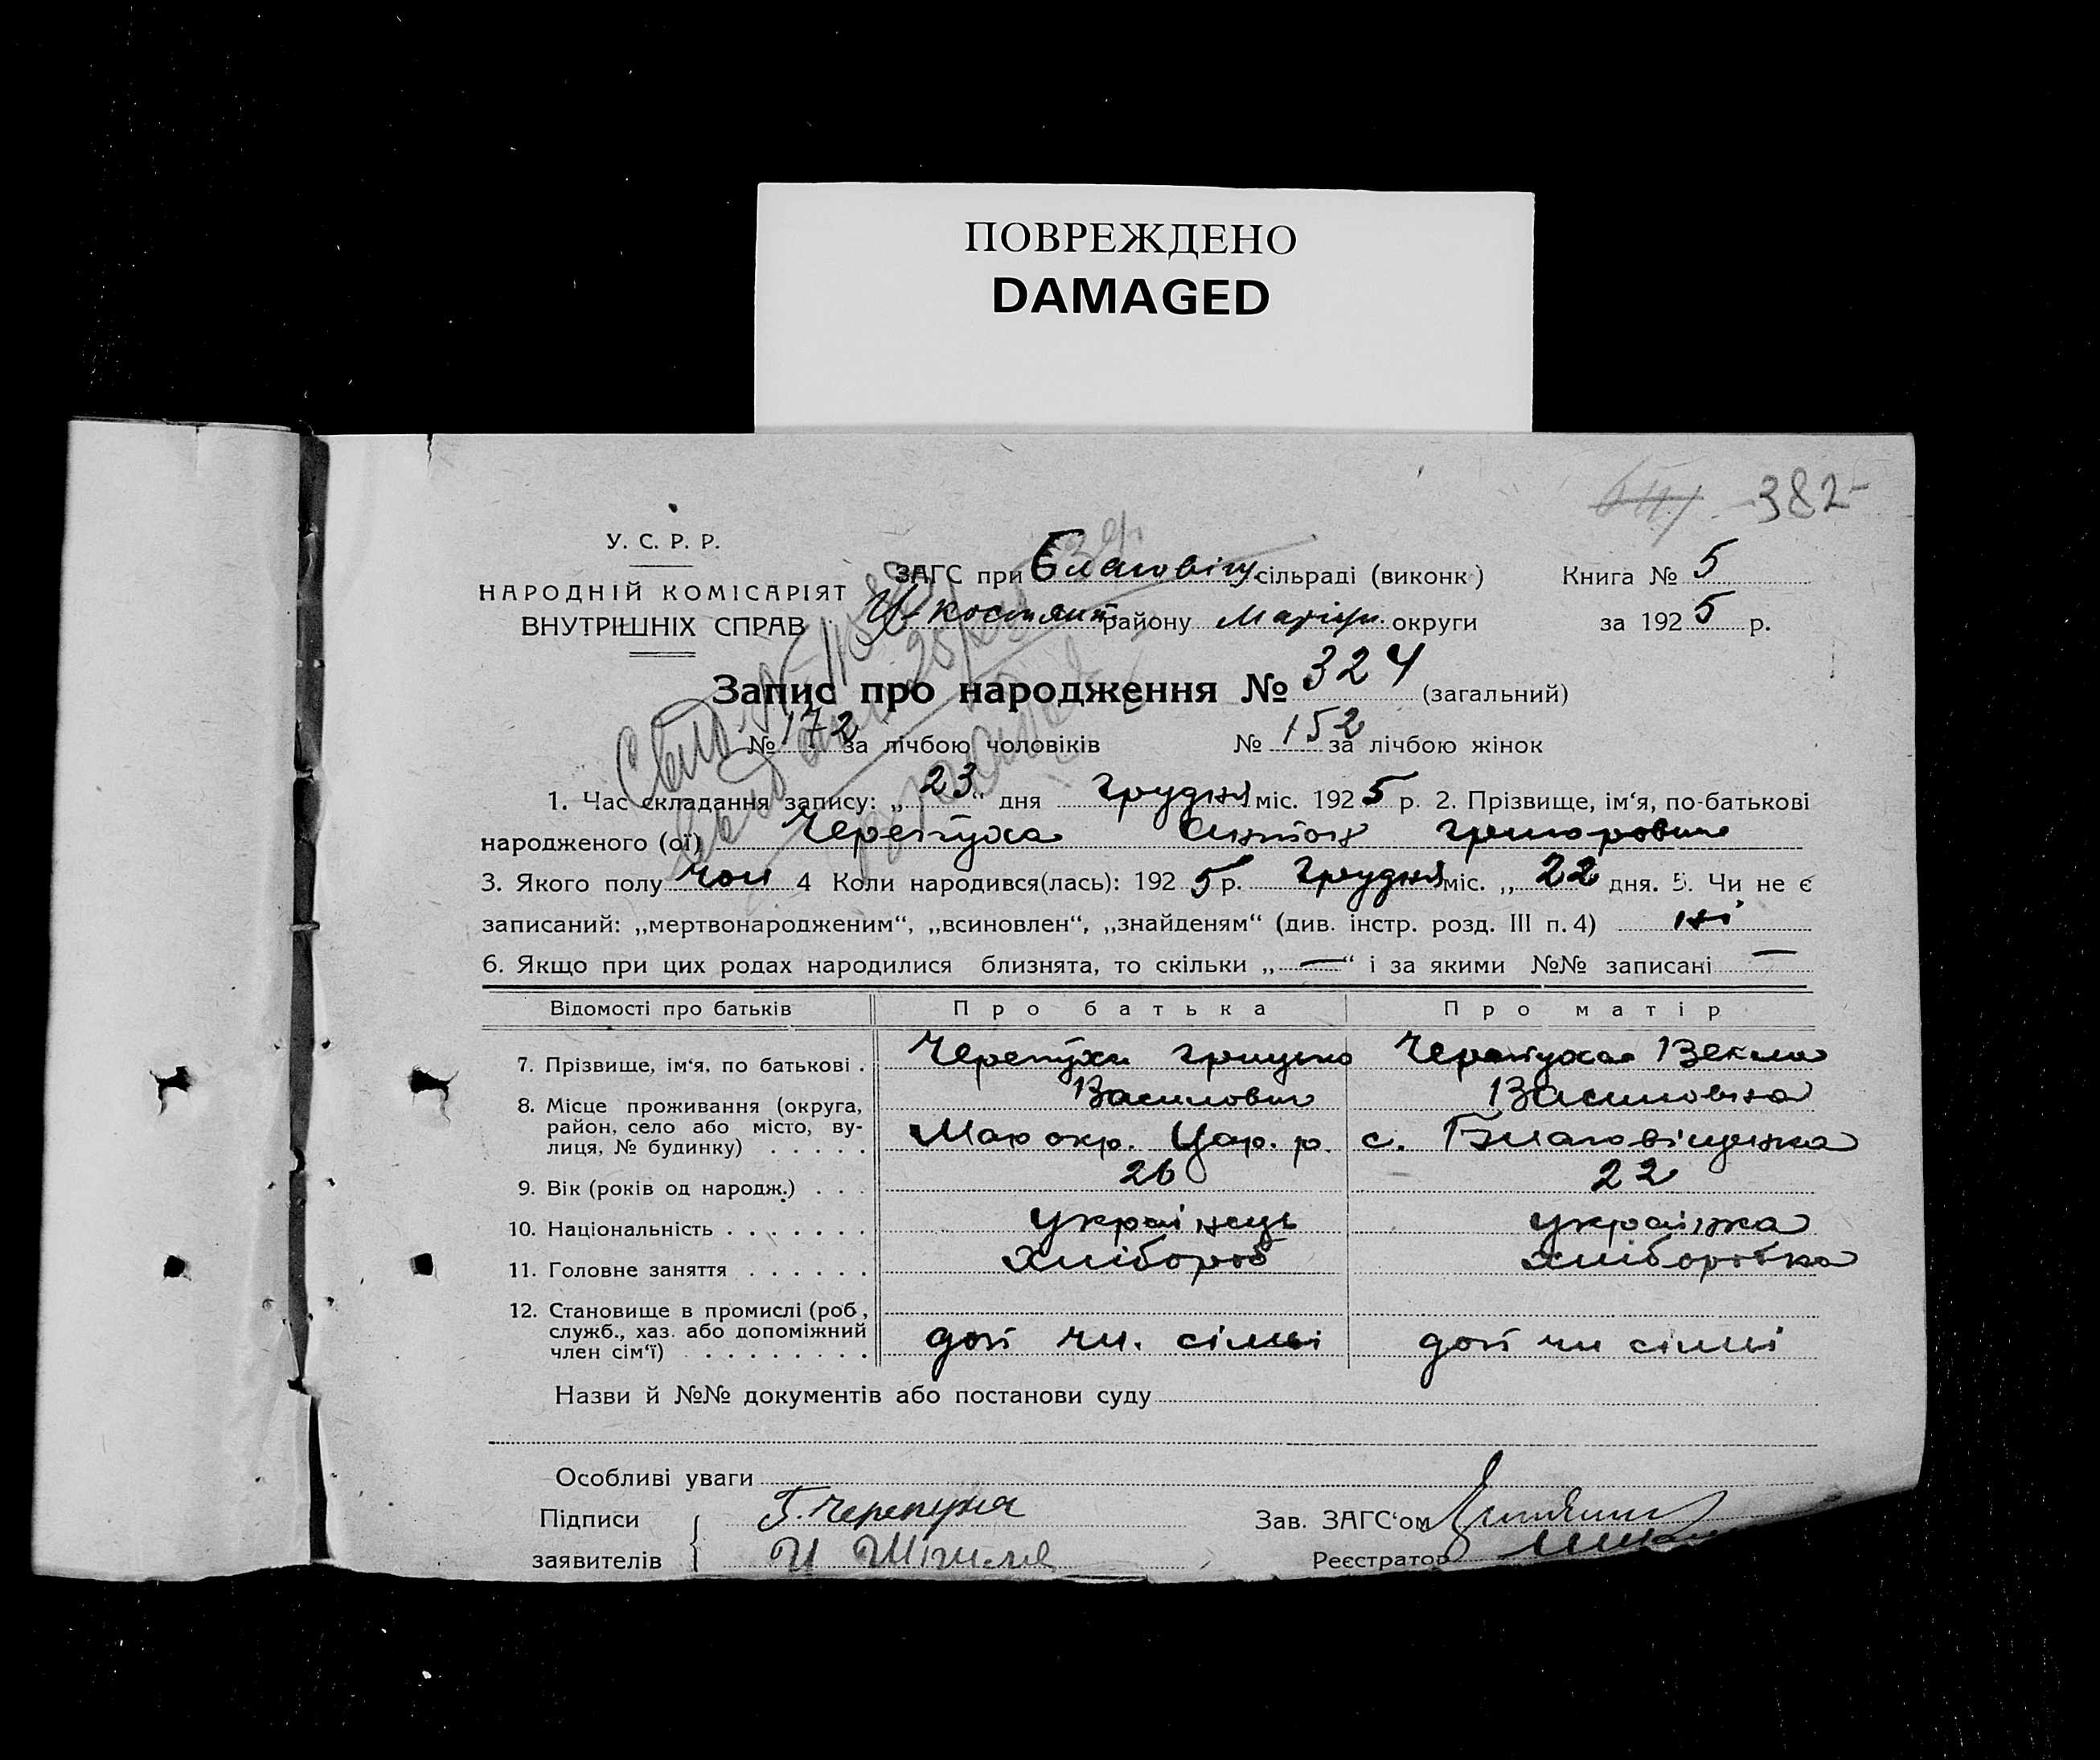 ПОВРЕЖДЕНО
DAMAGED
382
У. С. Р. Р.
НАРОДНІЙ КОМІСАРІЯТ
ВНУТРІШНІХ СПРАВ
ЗАГС при Благовіщ. сільраді (виконк.) Книга № 5
Ц-костянт. району Маріуп. округи за 1925 р.
Запис про народження № 324 (загальний)
№ 172 за лічбою чоловіків № 152 за лічбою жінок
1. Час складання запису: „23“ дня грудня міс. 1925 р. 2. Прізвище, ім‘я, по-батькові
народженого (ої) Черепуха Антон григорович
3. Якого полу чол 4 Коли народився(лась): 1925 р. грудня міс. „22 дня. 5. Чи не є
записаний: „мертвонародженим“, „всиновлен“, „знайденям“ (див. інстр. розд. III п. 4) ні
6. Якщо при цих родах народилися близнята, то скільки „—“ і за якими №№ записані —
Відомості про батьків Про батька Про матір
7. Прізвище, ім‘я, по батькові . Черепуха грицько Черепуха Векла
Василович Василовна
8. Місце проживання (округа,
район, село або місто, ву-
лиця, № будинку) . . . . . Мар окр. Цар. р. с. Благовіщенка
9. Вік (років од народж.) . . . 26 22
10. Національність . . . . . . . українець українка
11. Головне заняття . . . . . . хлібороб хлiборобка
12. Становище в промислі (роб.,
служб., хаз. або допоміжний
член сім‘ї) . . . . . . . . . доп чл. сімьі доп чл сімьі
Назви й №№ документів або постанови суду
Особливі уваги
Підписи Г. Черепуха Зав. ЗАГС‘ом
заявителів И Реєстратор